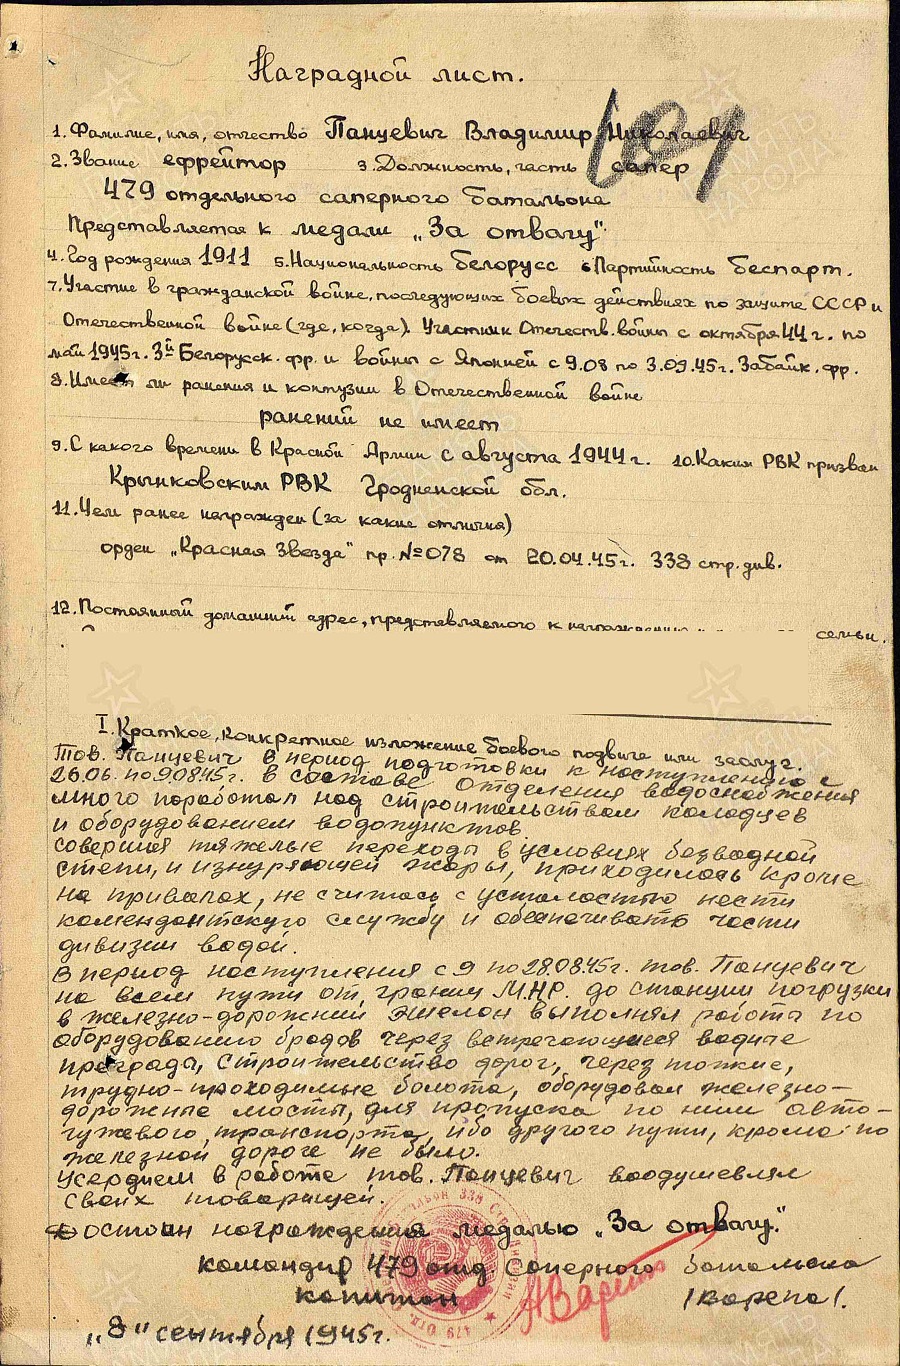 Наградной лист.
1. Фамилие, имя, отчество Панцевич Владимир Николаевич
2. Звание ефрейтор 3. Должность, часть сапер
479 отдельного саперного батальона
Представляется к медали „За отвагу"
4. Год рождения 1911 5. Национальность белорусс 6 Партийность беспарт.
7. Участие в гражданской войне, последующих боевых действиях по защите СССР и
Отечественной войне (где, когда). Участник Отечеств. войны с октября 44 г. по
май 1945г. 3й Белорусск. фр. и войны с Японией с 9.08 по 3.09.45г. Забайк. фр.
8. Имеет ли ранения и контузии в Отечественной войне
ранений не имеет
9. С какого времени в Красной Армии с августа 1944 г. 10. Каким РВК призван
Крынковским РВК Гродненской обл.
11. Чем ранее награжден (за какие отличия)
орден „Красная Звезда" пр. №078 от 20.04.45г. 338 стр. див.
12. Постоянный домашний адрес, представляемого к награждению семьи.
I. Краткое, конкретное изложение боевого подвига или заслуг.
Тов. Панцевич в период подготовки к наступлению с
26.06. по 9.08.45г. в составе отделения водоснабжения
много поработал над строительством колодцев
и оборудованием водопунктов.
совершая тяжелые переходы в условиях безводной
степи, и изнуряющей жары, приходилось кроме
на привалах, не считаясь с усталостью нести
комендантскую службу и обеспечивать части
дивизии водой.
В период наступления с 9 по 28.08.45г. тов. Панцевич
на всем пути от границ М.Н.Р. до станции погрузки
в железно-дорожный эшелон выполнял работы по
оборудованию бродов через встречающиеся водные
преграды, строительство дорог, через топкие,
трудно-проходимые болота, оборудовал железно-
дорожные мосты, для пропуска по ним авто-
гужевого транспорта, ибо другого пути, кроме по
железной дороге не было.
Усердием в работе тов. Панцевич воодушевлял
своих товарищей.
Достоин награждения медалью „За отвагу."
командир 479 отд Саперного батальона
капитан /Варепа/.
„8" сентября 1945г.